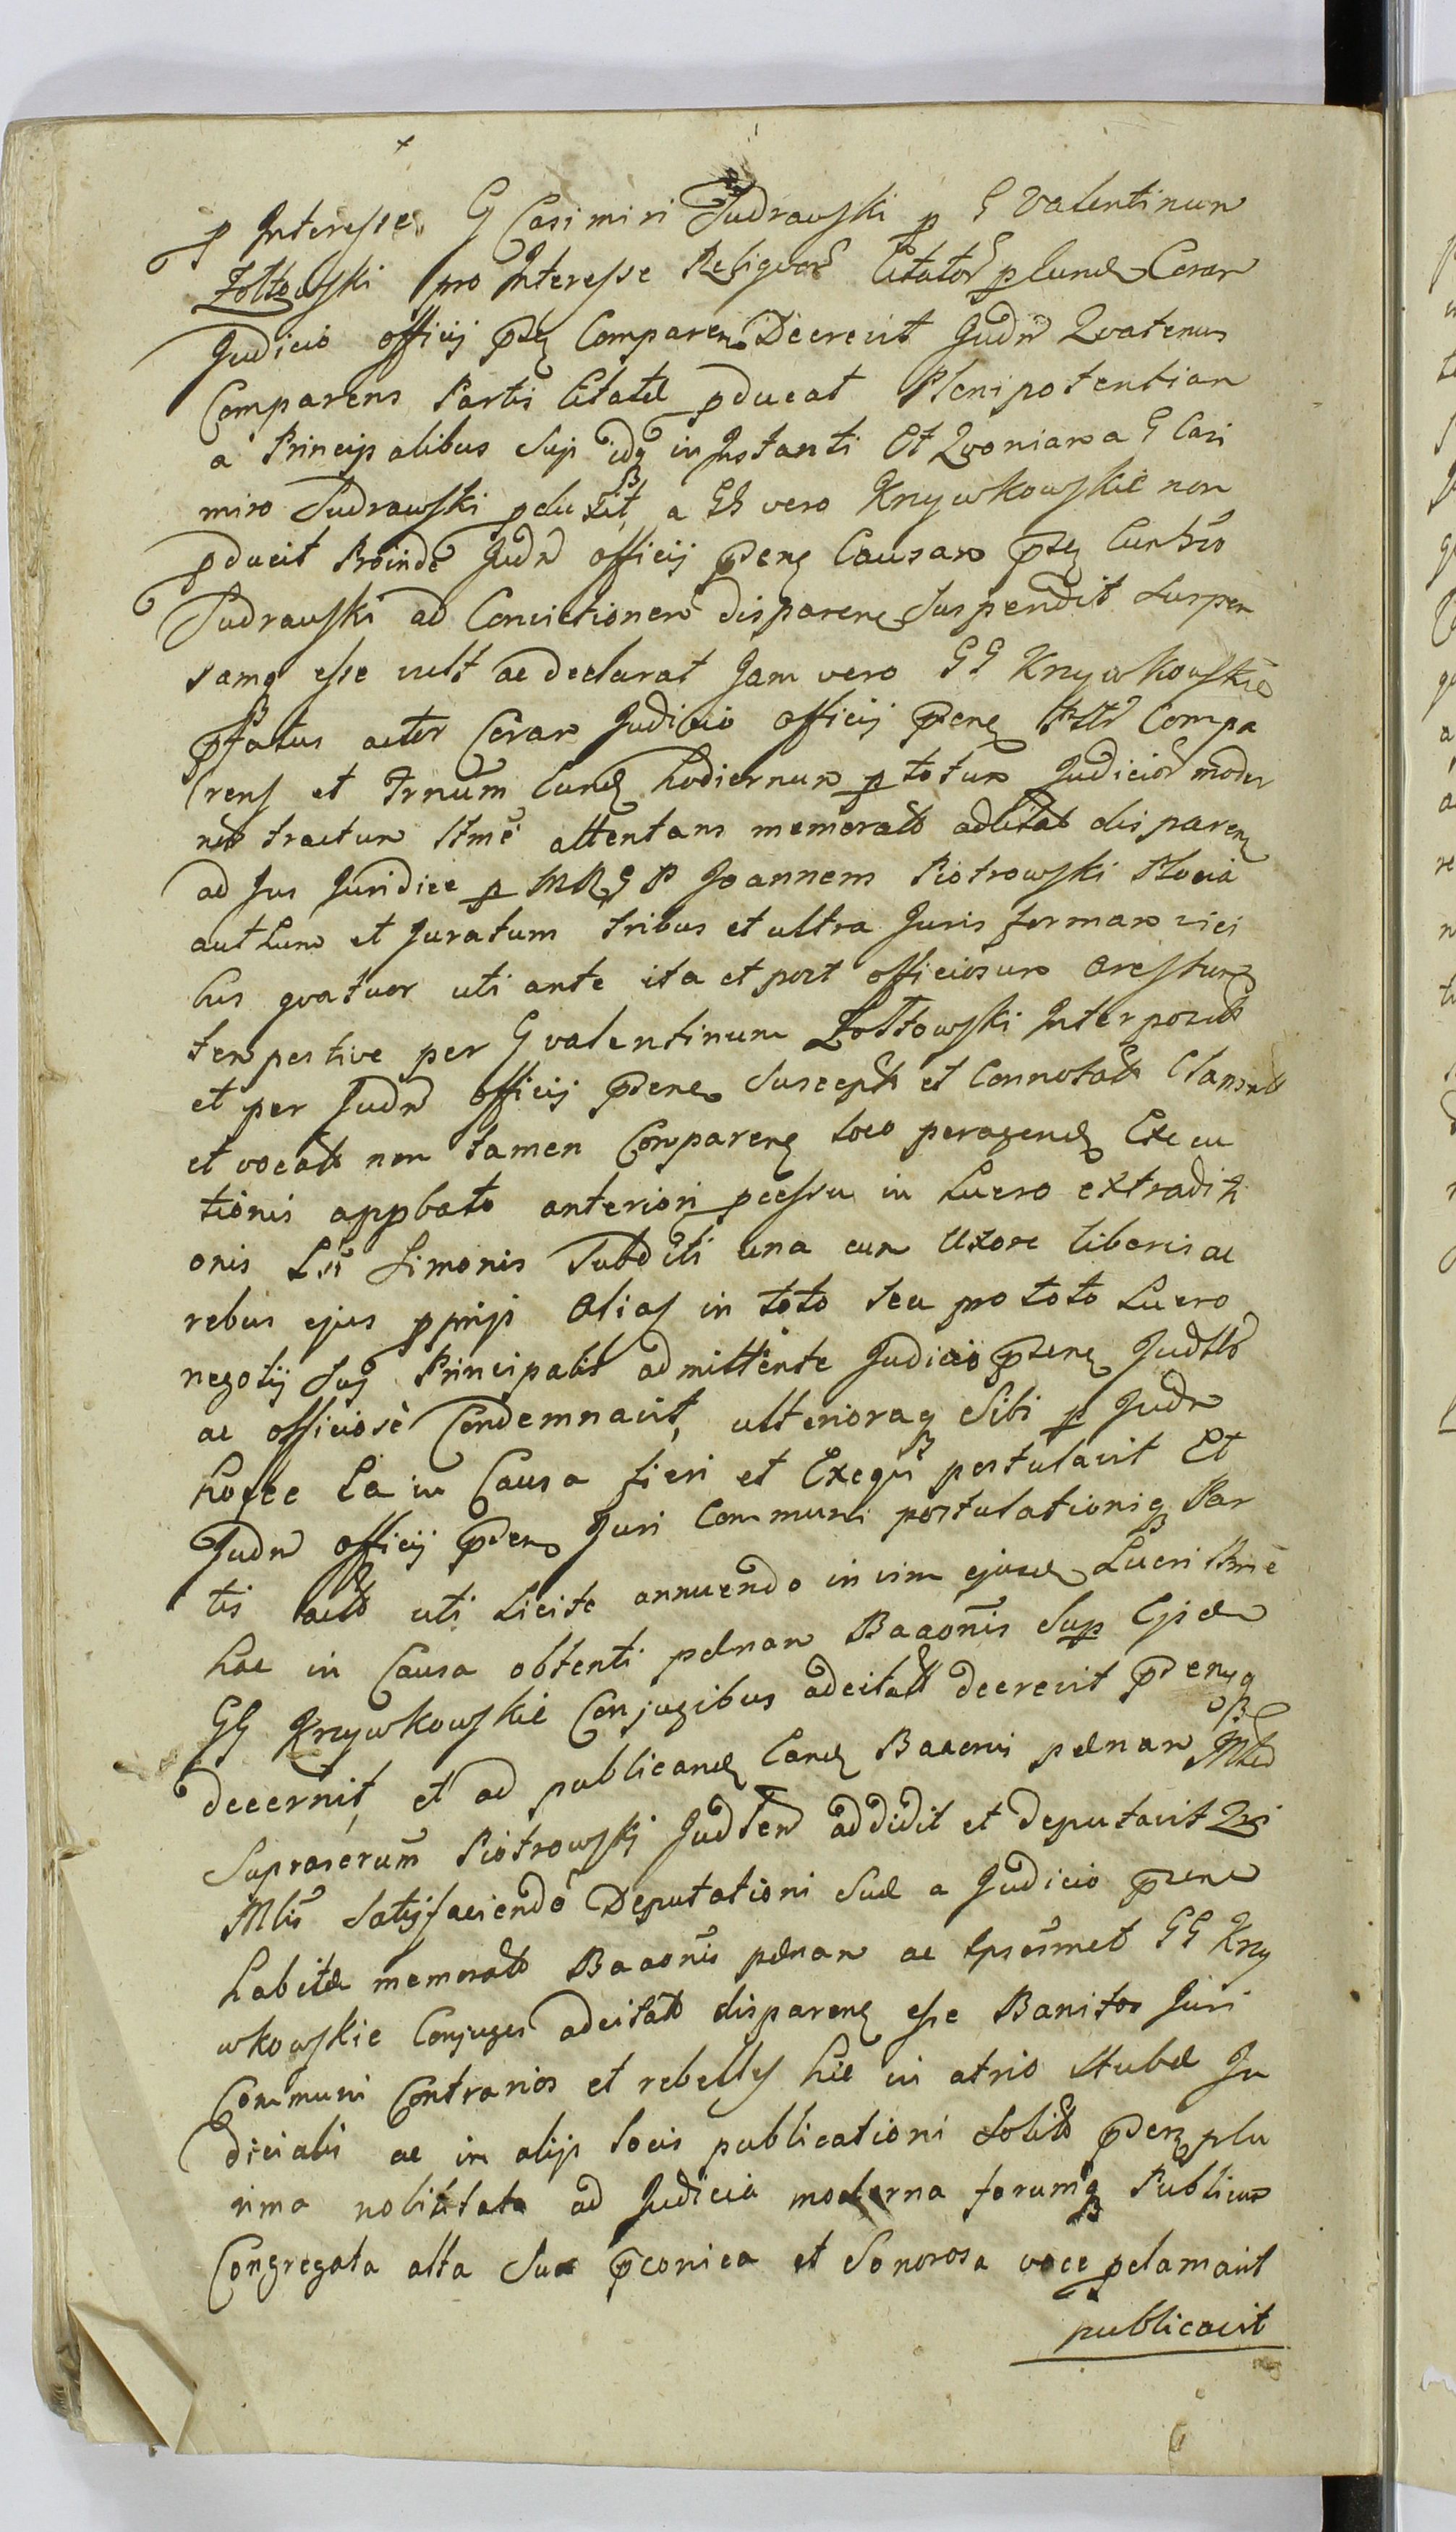 p Interesse G Casimiri Sudrawski p G Valentinum
Zołtowski pro Interesse Reliquor Citator plund Coram
Judicio officij pntj Comparen Decrevit Judm Quatenus
Comparens Partis Citatæ pducat Plenipotentiam
a Principalibus Sup idq in Instanti Et Quoniam a G Casi
miro Sudrawski pduxit, a GG vero Krzywkowskie non
pducit Proinde Judm officij pnens Causam cum
Sudrawski ad Convictionem disparen Suspendit Suspen
samq esse vult ac declarat Jam vero GG Krzywkowskie
pfatus actor Coram Judicio officij pnens Compa
rens et Trnum eund hodiernum p totum Judicior moder
nor tractum ltmè attentans memorato adcitat disparen
ad Jus Juridice p MRGP Joannem Piotrowski
authum et Juratum tribus et ultra Juris formam vici
bus quatuor uti ante ita et post officiosum arestum
tempestive per G Valentinum Zołtowski Interposit
et per Judm officij pnens Suscept et Connotat Clamat
et vocat non tamen Comparen loco peragend Execu
tionis appbato anteriori pcessu in Lucro extraditi
onis Simonis Subditi una cum Uxore liberis ac
rebus ejus pprijs alias in toto seu pro toto Lucro
negotij Suj Principalis admittente Judicio pnens
ac officiosè Condemnavit, ulterioraq Sibi p Judm
hocce Ea in Causa fieri et Exequi postulavit Et
Judm officij pnens Juri Communi postulationiq Par
tis uti Licite annuendo in vim ejusd Lucri ltmè
hac in Causa obtenti pænam Baaonis Sup Ijsdem
GG Krzywkowskie Conjugibus adcitatt decrevit pnensq
decernit, et ad publicand Eand Baaonis pænam
Suprascrum Piotrowskj addidit et deputavit Qui
Satisfaciendo Deputationi Suæ a Judicio pnens
habitæ memorato Baaonis pænam ac Ipsosmet GG Krzy
wkowskie Conjuges adcitat disparen esse Banitos Juri
Communi Contrarios et rebelles hic in atrio Stubæ Ju
dicialis ac in alijs locis publicationi Solit plu
rima nobilitate ad Judicia moderna forumq Publicum
Congregata alta Sua pconica et Sonorosa voce pclamavit
publicavit